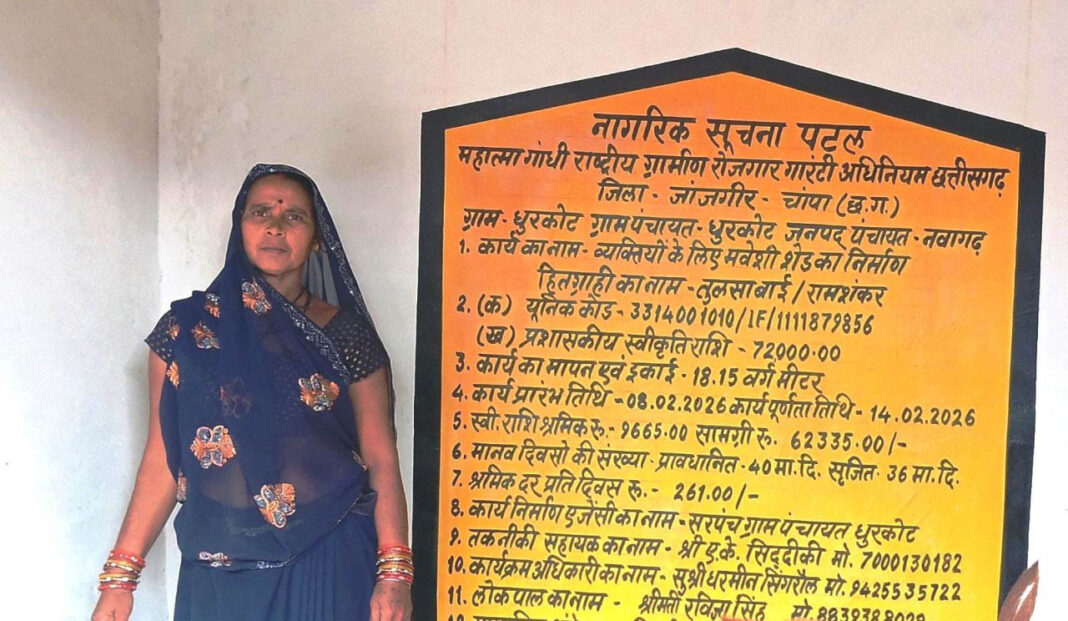 नागरिक सूचना पटल
महात्मा गांधी राष्ट्रीय ग्रामीण रोजगार गारंटी अधिनियम छत्तीसगढ़
जिला - जांजगीर - चांपा (छ.ग.)
ग्राम - धुरकोट ग्राम पंचायत - धुरकोट जनपद पंचायत - नवागढ़
1. कार्य का नाम - व्यक्तियों के लिए मवेशी शेड का निर्माण
हितग्राही का नाम - तुलसा बाई / रामशंकर
2. (क) यूनिक कोड - 3314001010/IF/1111879856
(ख) प्रशासकीय स्वीकृति राशि - 72000.00
3. कार्य का मापन एवं इकाई - 18.15 वर्ग मीटर
4. कार्य प्रारंभ तिथि - 08.02.2026 कार्य पूर्णता तिथि - 14.02.2026
5. स्वी. राशि श्रमिक रू. - 9665.00 सामग्री रू. 62335.00/-
6. मानव दिवसो की संख्या - प्रावधानित - 40 मा.दि. सृजित - 36 मा.दि.
7. श्रमिक दर प्रति दिवस रू. - 261.00/-
8. कार्य निर्माण एजेंसी का नाम - सरपंच ग्राम पंचायत धुरकोट
9. तकनीकी सहायक का नाम - श्री ए.के. सिद्दीकी मो. 7000130182
10. कार्यक्रम अधिकारी का नाम - सुश्री धरमीन सिंगरौल मो. 9425535722
11. लोकपाल का नाम - श्रीमती रविजा सिंह मो.